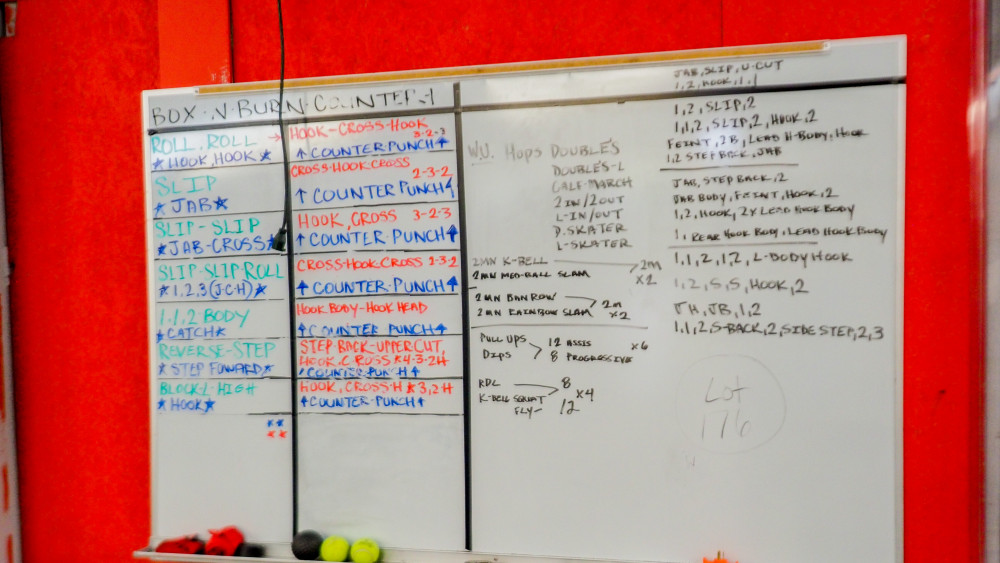 BOX-N-BURN-COUNTER-1
ROLL, ROLL →
★ HOOK, HOOK ★
HOOK-CROSS-HOOK
3-2-3
↑ COUNTER PUNCH ↑
SLIP
★ JAB ★
CROSS-HOOK-CROSS
2-3-2
↑ COUNTER PUNCH ↑
SLIP-SLIP
★ JAB-CROSS ★
HOOK, CROSS 3-2-3
↑ COUNTER-PUNCH ↑
SLIP-SLIP-ROLL
★ 1,2,3 (J-C-H) ★
CROSS-HOOK-CROSS 2-3-2
↑ COUNTER-PUNCH ↑
1,1,2 BODY
★ CATCH ★
HOOK BODY-HOOK HEAD
↑ COUNTER PUNCH ↑
REVERSE-STEP
★ STEP FOWARD ★
STEP-BACK-UPPERCUT,
HOOK, CROSS ★ 4-3-2H
↑ COUNTER-PUNCH ↑
BLOCK-L-HIGH
★ HOOK ★
HOOK, CROSS-H ★ 3,2H
↑ COUNTER-PUNCH ↑
★★
★★
W.U. Hops DOUBLE'S
DOUBLES-L
CALF-MARCH
2IN/2OUT
L-IN/OUT
D.SKATER
L-SKATER
2MN K-BELL
2MN MED-BALL SLAM
2m
×2
2MN BAN ROW
2MN RAINBOW SLAM
2m
×2
PULL UPS
DIPS
12 ASSIS
8 PROGRESSIVE
×6
RDL
K-BELL SQUAT
FLY-
8
12
×4
JAB, SLIP, U-CUT
1,2, HOOK, 1,1
1,2, SLIP, 2
1,1,2, SLIP, 2, HOOK, 2
FEINT, 2B, LEAD H-BODY, HOOK
1,2 STEP BACK, JAB
JAB, STEP BACK, 2
JAB BODY, FEINT, HOOK, 2
1,2, HOOK, 2X LEAD HOOK BODY
1, REAR HOOK BODY, LEAD HOOK BODY
1,1,2, 1,2, L-BODY HOOK
1,2, S, S, HOOK, 2
JH, JB, 1,2
1,1,2, S-BACK, 2, SIDE STEP, 2, 3
Lot
176